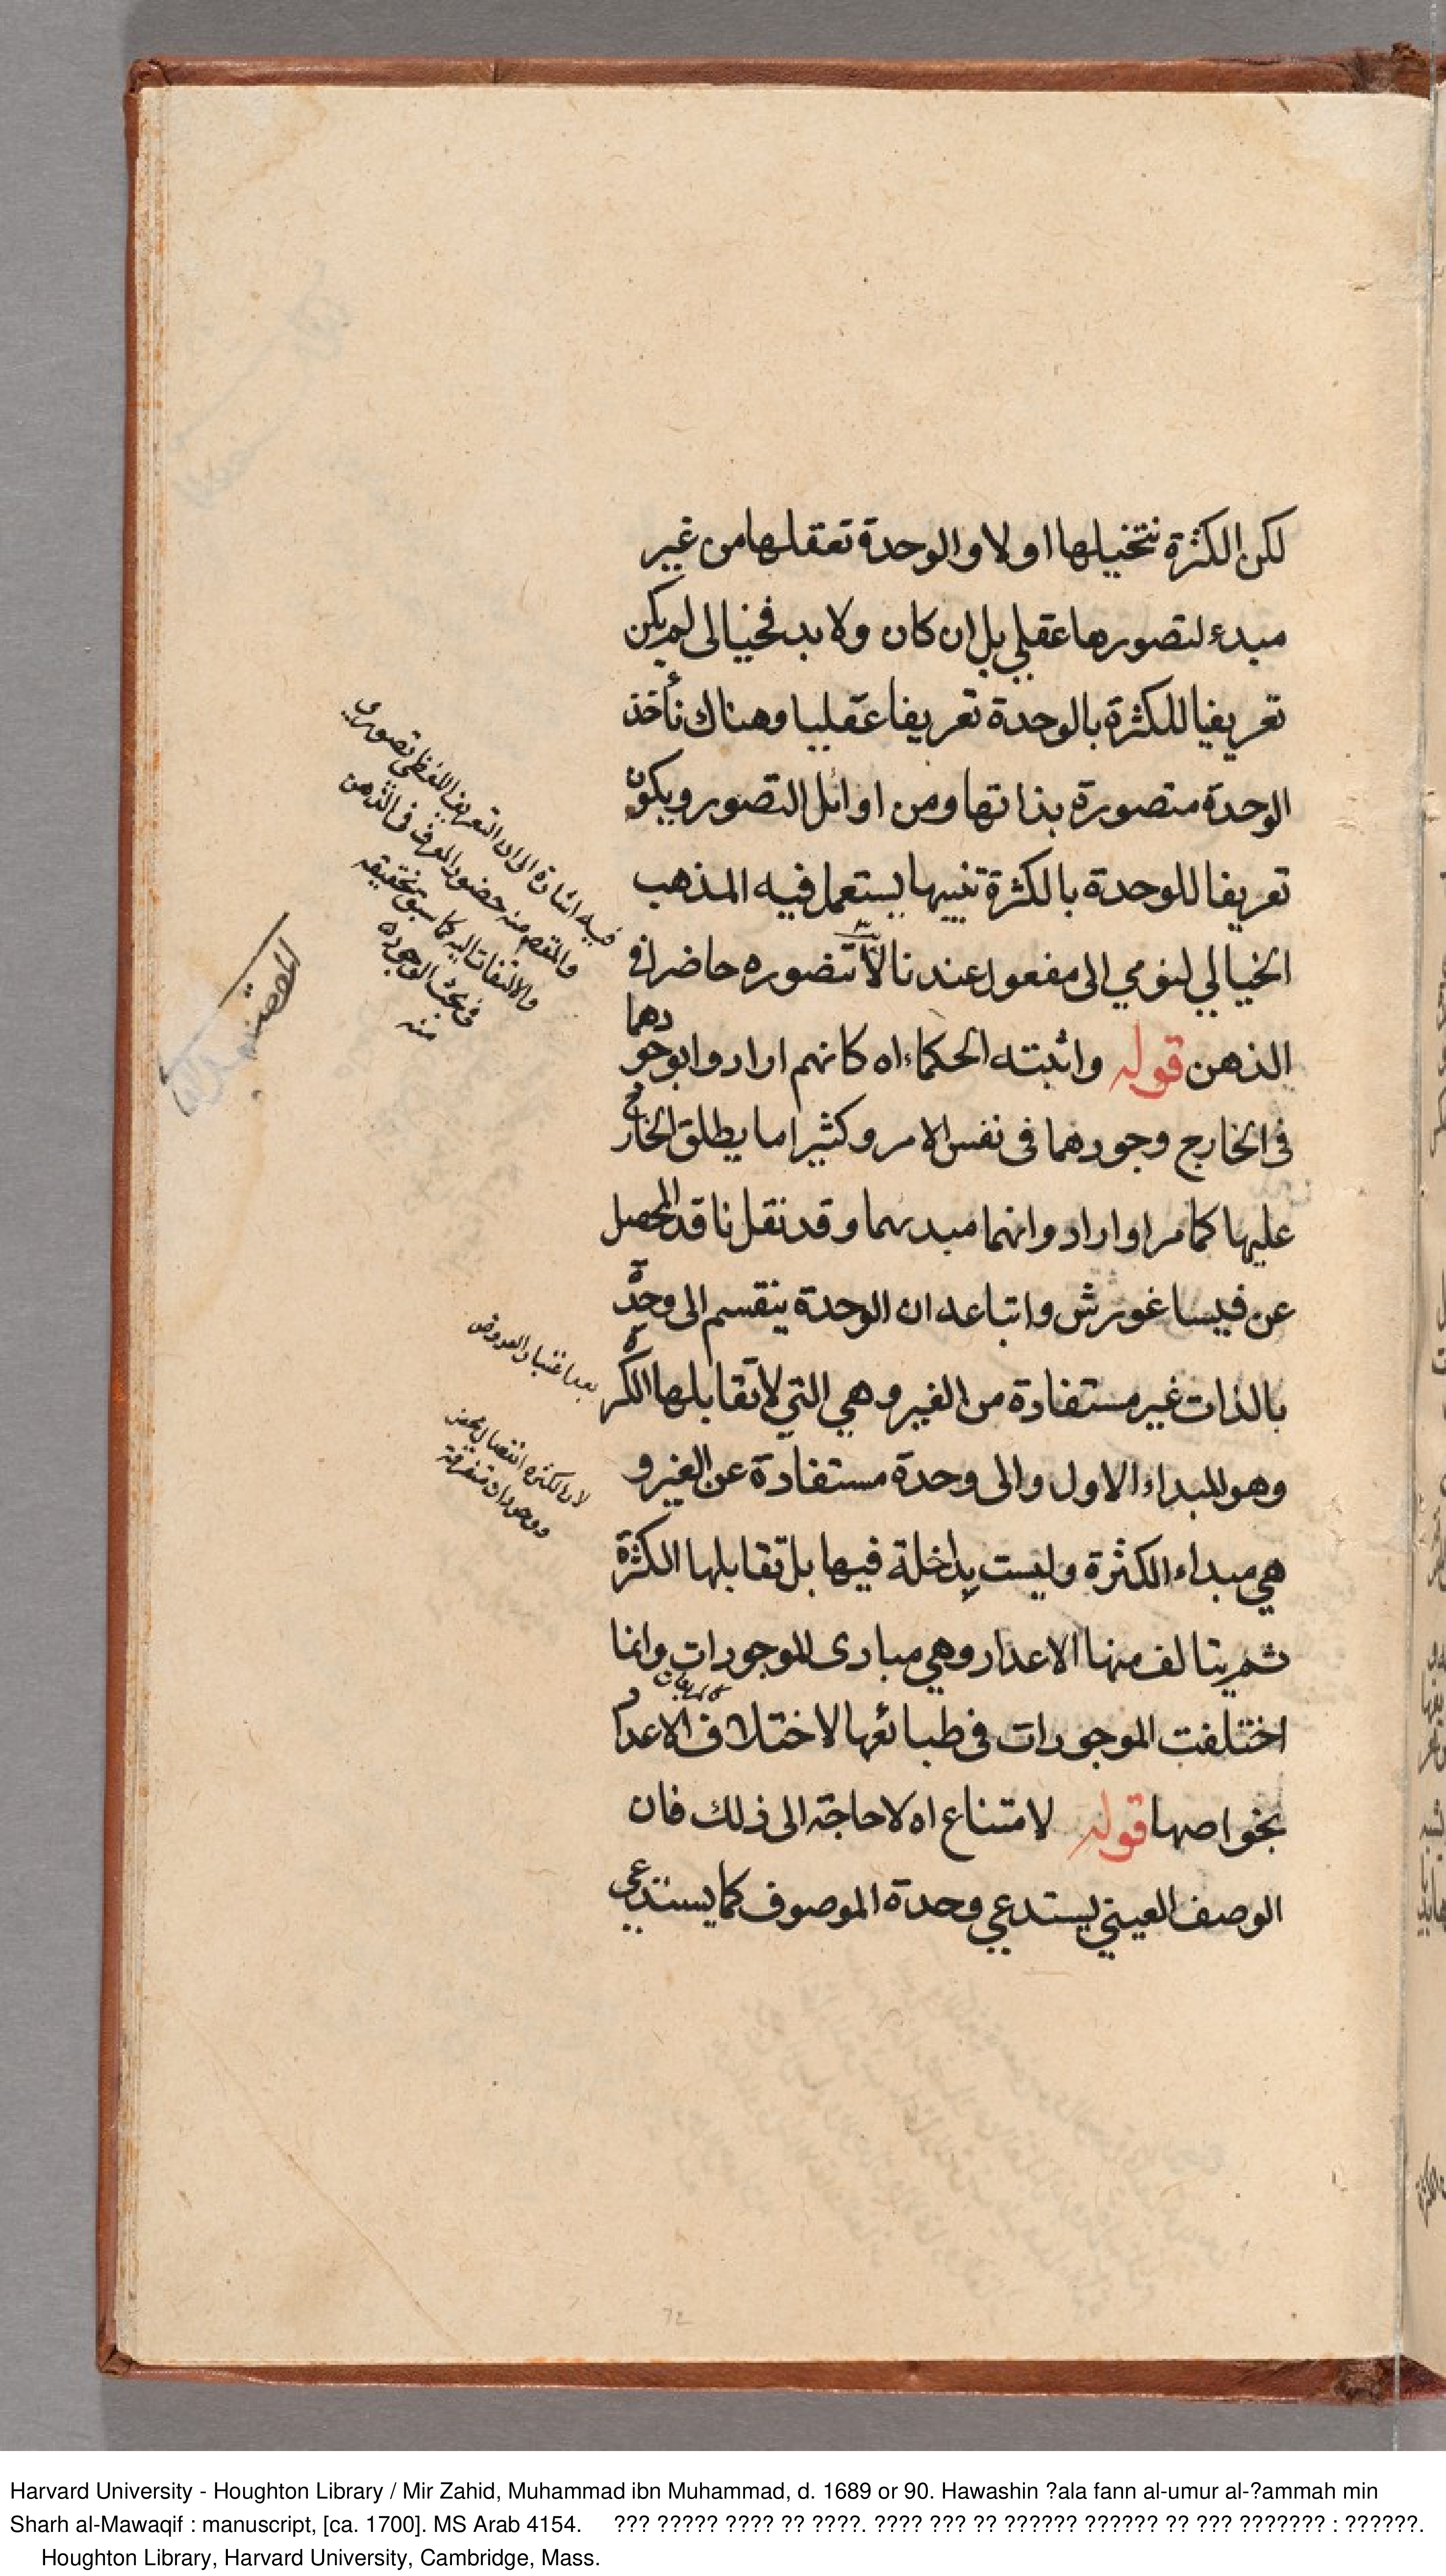 لكن الكثرة نتخيلها اولا والوحدة تعقلها من غير
مبدء لتصورها عقلي بل ان كان ولا بد فخيالى لم يكن
تعريفا للكثرة بالوحدة تعريفا عقليا وهناك نأخذ
الوحدة متصورة بذاتها ومن اوائل التصور ويكون
تعريفا للوحدة بالكثرة تنبيها يستعمل فيه المذهب
الخيالي لنومي الى مفعول عندنا لا نتصوره حاضرا في
الذهن قوله واثبته الحكماء اه كانهم ارادوا بوجودهما
فى الخارج وجودهما فى نفس الامر وكثيرا ما يطلق الخارج
عليها كما مر او ارادوا انهما مبديهما وقد نقل ناقد المحصل
عن فيساغورش واتباعه ان الوحدة ينقسم الى وحدة
بالذات غير مستفادة من الغير وهي التي لا تقابلها الكثرة
وهو المبداء الاول والى وحدة مستفادة عن الغير و
هي مبداء الكثرة وليست بداخلة فيها بل تقابلها الكثرة
ثم يتالف منها الاعداد وهي مبادى الموجودات وانما
اختلفت الموجودات فى طبائعها لاختلاف الاعداد
بخواصها قوله لامتناع اه لا حاجة الى ذلك فان
الوصف العيني يستدعي وحدة الموصوف كما يستدعي
فيه اشارة الى ان التعريف اللفظى تصوري
والمقصود منه حضور المعرف فى الذهن
والالتفات اليه كما سبق تحقيقه
فى بحث الوجود
منه
باعتبار العروض
لان الكثرة
72
Harvard University - Houghton Library / Mir Zahid, Muhammad ibn Muhammad, d. 1689 or 90. Hawashin ?ala fann al-umur al-?ammah min
Sharh al-Mawaqif : manuscript, [ca. 1700]. MS Arab 4154. ??? ????? ???? ?? ????. ???? ??? ?? ?????? ?????? ?? ??? ??????? : ??????.
Houghton Library, Harvard University, Cambridge, Mass.